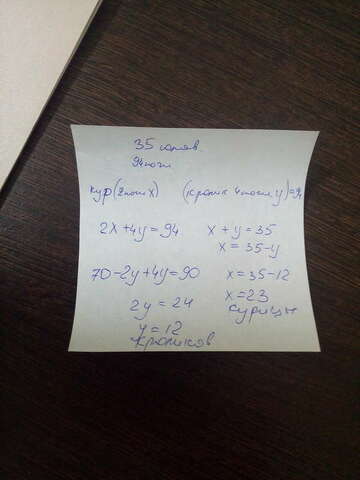 35 голов
94 ноги
кур (2 ноги x) (кролик 4 ноги, y) = 94
2x + 4y = 94 x + y = 35
x = 35 - y
70 - 2y + 4y = 90 x = 35 - 12
2y = 24 x = 23
курицы
y = 12
кроликов